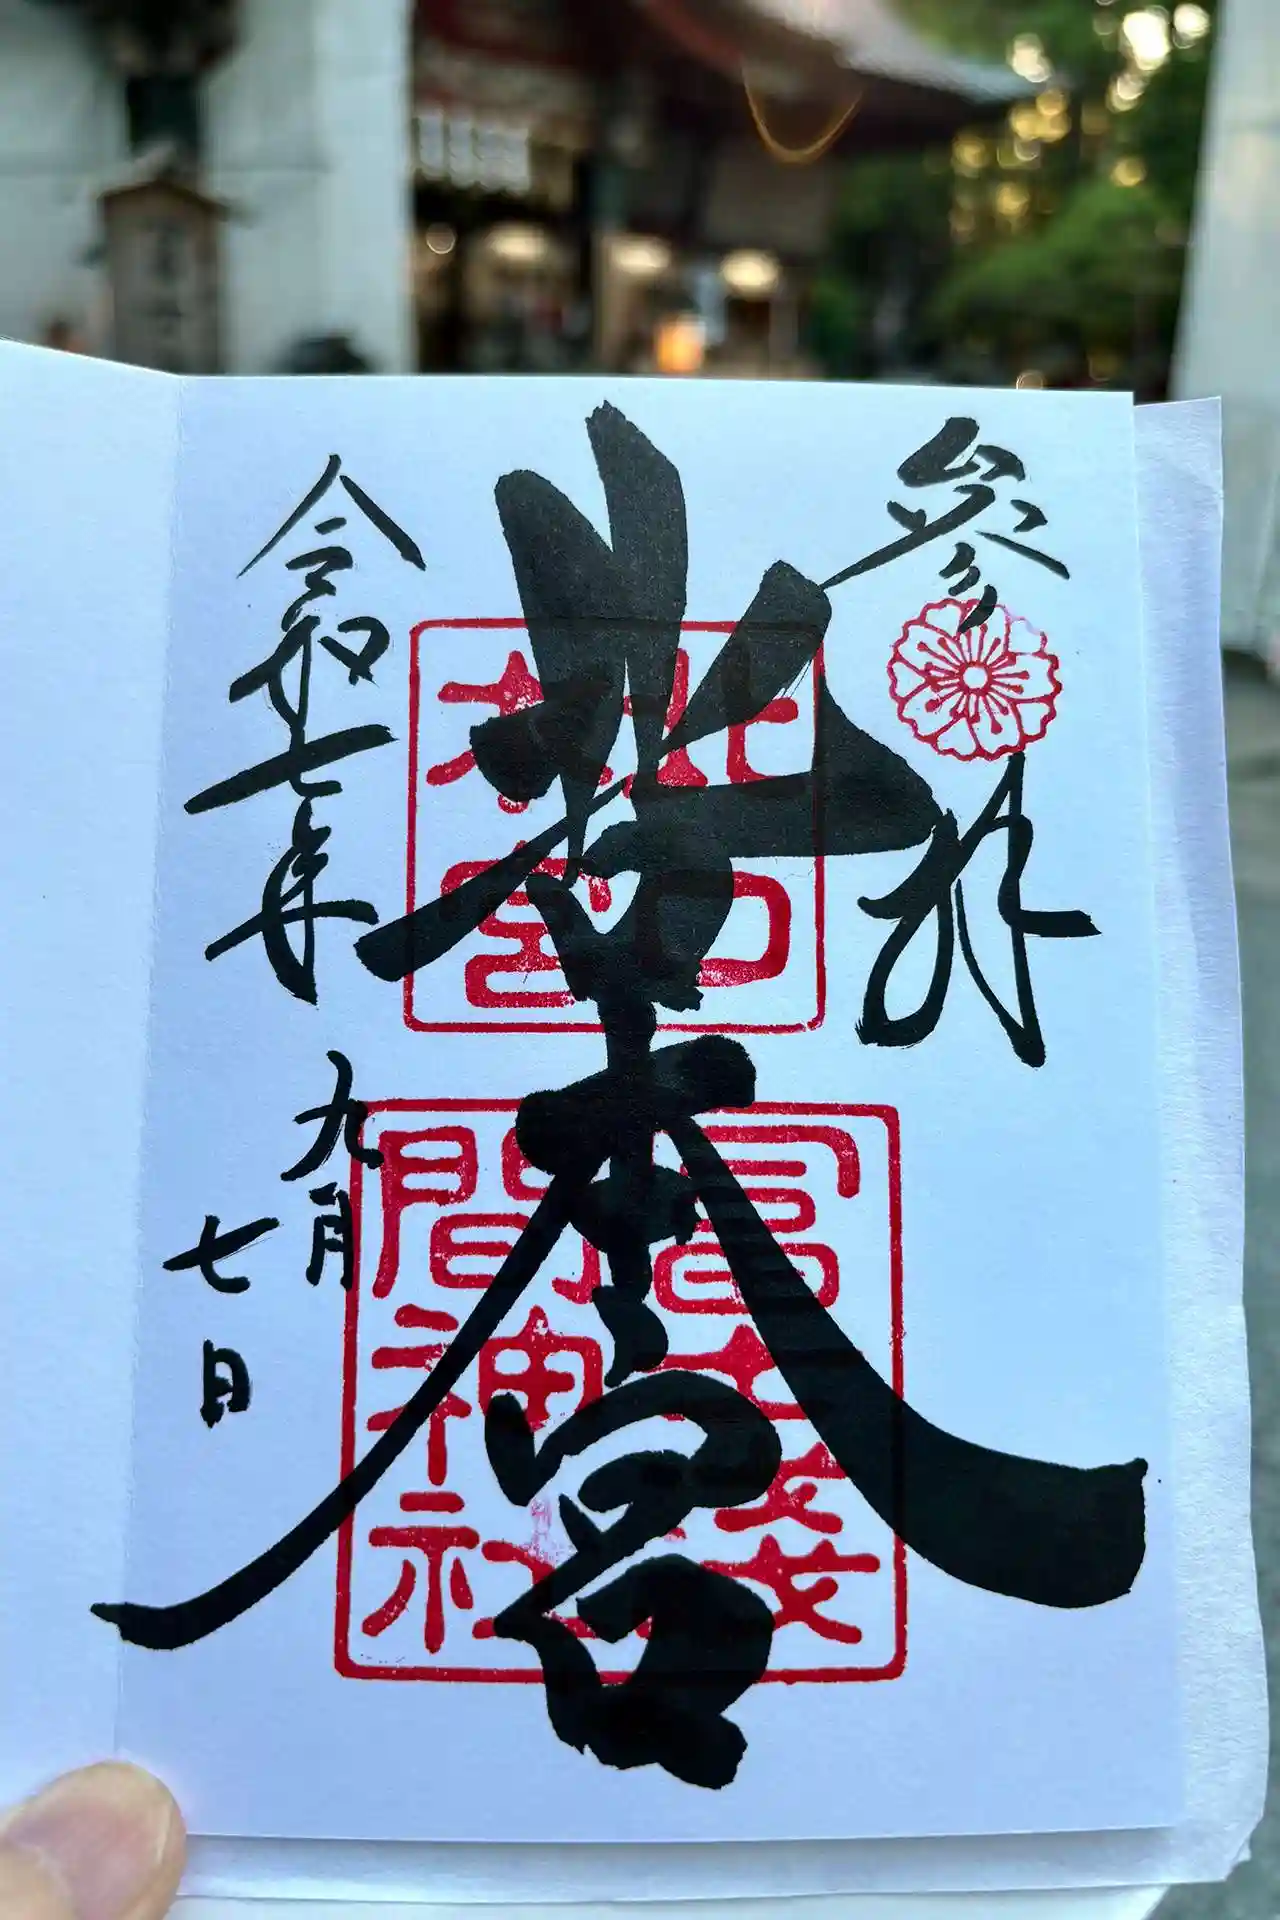 参拝
北口本宮
北口
本宮
冨士浅
間神社
令和七年
九月
七日